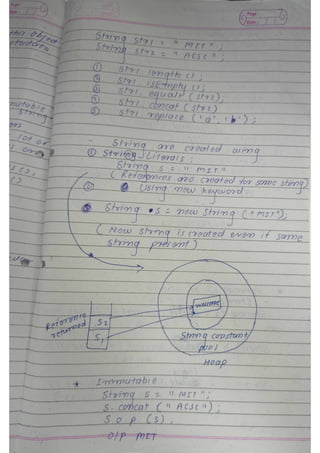 Page:
Date:
Page:
Date:
this object
metadata
mutable
string
lot of
String str1 = "MIT";
String str2 = "ACSC";
① str1.length();
② str1.isEmpty();
③ str1.equals(str2);
④ str1.concat(str2)
⑤ str1.replace('a', 'b');
- String are created using
① String Literals:
String s = "MIT"
(References are created for same string)
② Using new keyword.
String s = new String("MIT");
(New string is created even if same
string present)
Reference
returned
S2
S1
welcome
String constant
pool
Heap
* Immutable
String s = "MIT";
s.concat("ACSC");
S.o.p(s);
O/P MIT